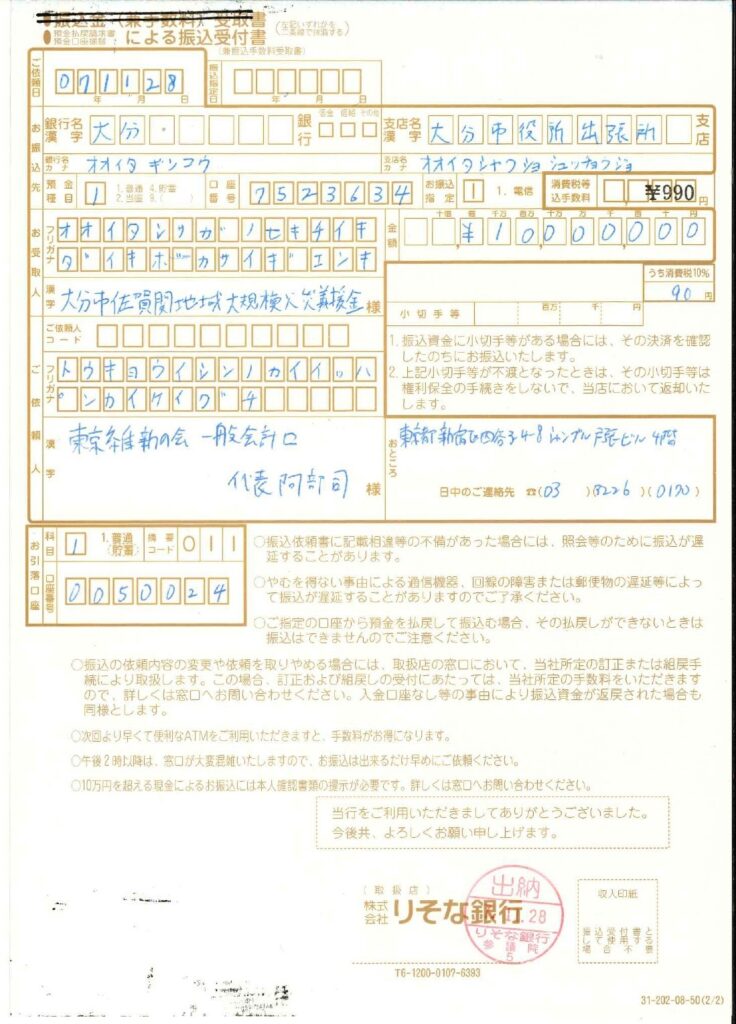 ●振込金(兼手数料)受取書
●預金払戻請求書
預金口座振替
による振込受付書
(左記いずれかを二条線で抹消する)
(兼振込手数料受取書)
ご依頼日
071128
年 月 日
振込指定日
年 月 日
お振込先
銀行名漢字
大分
銀行
信金 信組 その他
支店名漢字
大分市役所出張所
支店
銀行名カナ
オオイタ ギンコウ
支店名カナ
オオイタシヤクショ シュッチョウジョ
預金種目
1
1.普通 4.貯蓄
2.当座 9.( )
口座番号
7523634
お振込指定
1
1.電信
消費税等
込手数料
¥990
円
お受取人
フリガナ
オオイタシサガノセキチイキ
ダイキボカサイギエンキ
漢字
大分市佐賀関地域大規模火災義援金
様
金額
十億 百万 十万 千 円
¥10000000
うち消費税10%
90 円
小切手等
百万 千 円
1.振込資金に小切手等がある場合には、その決済を確認
したのちにお振込いたします。
2.上記小切手等が不渡となったときは、その小切手等は
権利保全の手続きをしないで、当店において返却いた
します。
ご依頼人
コード
ご依頼人
フリガナ
トウキョウイシンノカイイッハ
ンカイケイグチ
漢字
東京維新の会 一般会計口
代表 阿部司
様
おところ
日中のご連絡先 ☎(03)8226(0170)
お引落口座
科目
1
1.普通
(貯蓄)
摘要コード
011
口座番号
0050024
○振込依頼書に記載相違等の不備があった場合には、照会等のために振込が遅
延することがあります。
○やむを得ない事由による通信機器、回線の障害または郵便物の遅延等によっ
て振込が遅延することがありますのでご了承ください。
○ご指定の口座から預金を払戻して振込む場合、その払戻しができないときは
振込はできませんのでご注意ください。
○振込の依頼内容の変更や依頼を取りやめる場合には、取扱店の窓口において、当社所定の訂正または組戻手
続により取扱します。この場合、訂正および組戻しの受付にあたっては、当社所定の手数料をいただきます
ので、詳しくは窓口へお問い合わせください。入金口座なし等の事由により振込資金が返戻された場合も
同様とします。
○次回より早くて便利なATMをご利用いただきますと、手数料がお得になります。
○午後2時以降は、窓口が大変混雑いたしますので、お振込は出来るだけ早めにご依頼ください。
○10万円を超える現金によるお振込には本人確認書類の提示が必要です。詳しくは窓口へお問い合わせください。
当行をご利用いただきましてありがとうございました。
今後共、よろしくお願い申し上げます。
(取扱店)
株式会社 りそな銀行
出納
28
りそな銀行
参議院
5
収入印紙
振込受付書と
して使用する
場合不要
T6-1200-0107-6393
31-202-08-50(2/2)